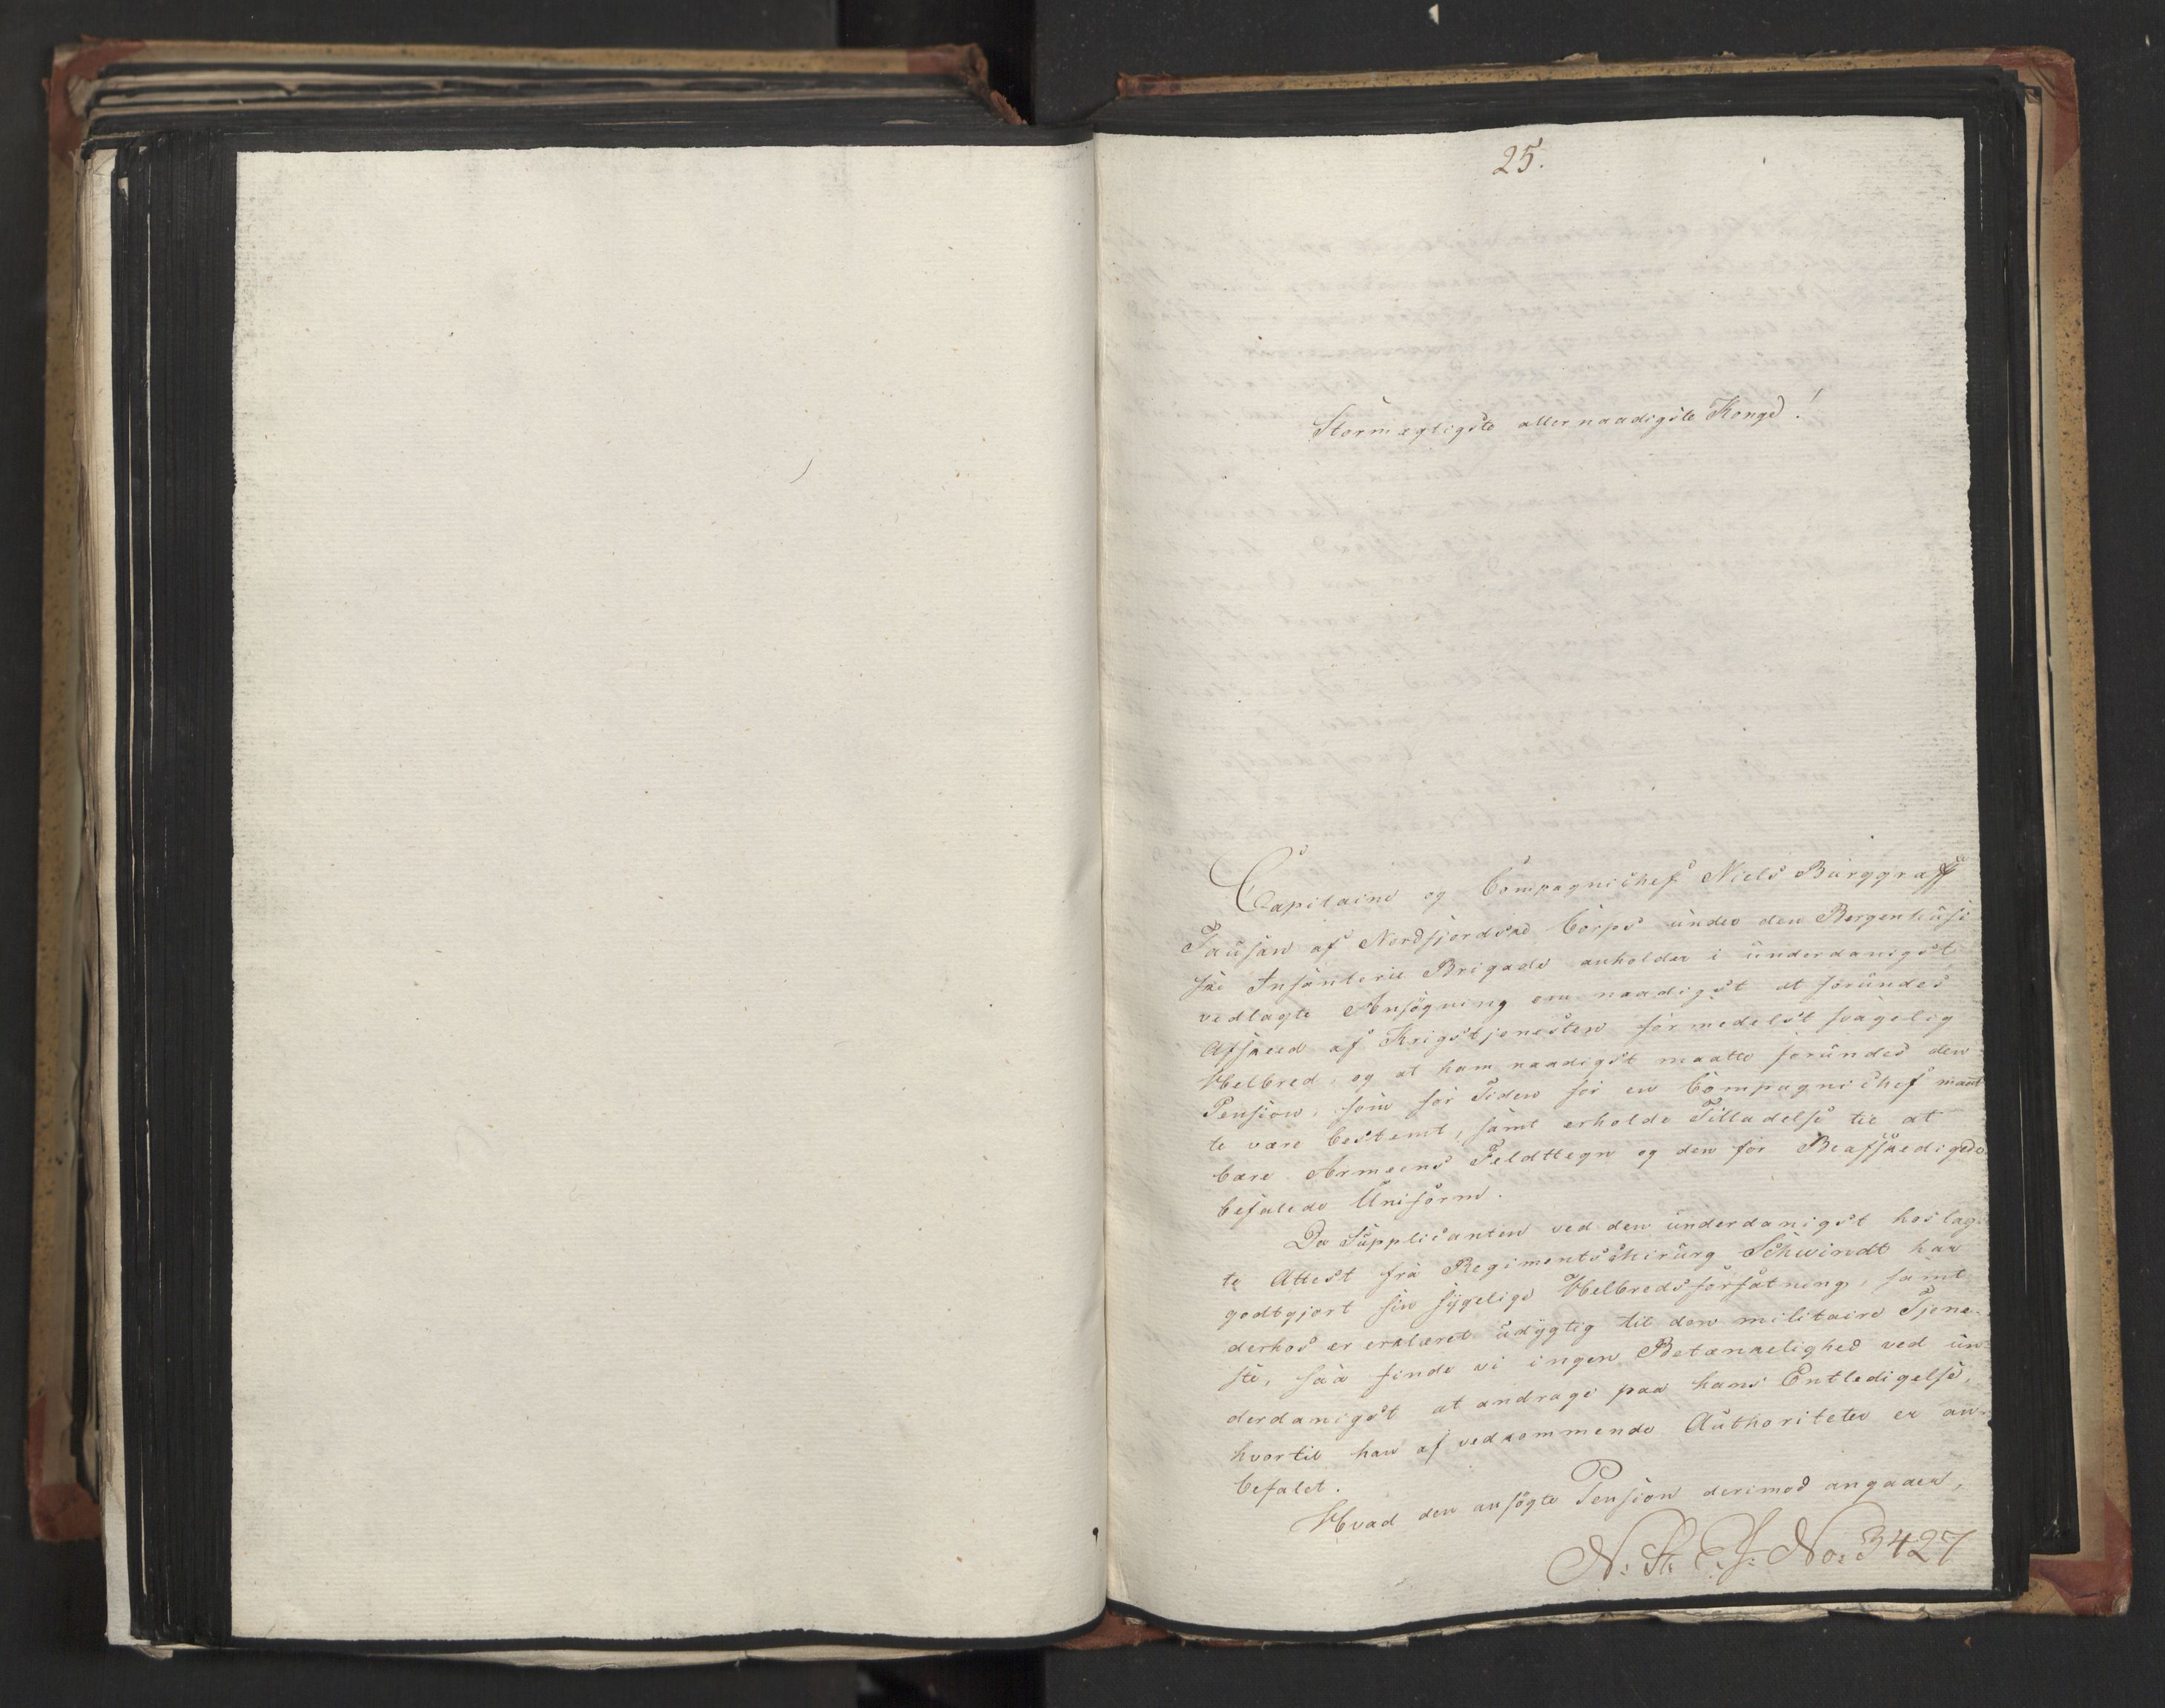 25.
Stormægtigste allernaadigste Konge!
Capitaine og Compagnichef Niels Burggraff
Fausan af Nordfjordske Corps under den Bergenhusi-
ske Infanterie Brigade anholder i underdanigst
vedlagte Ansøgning om naadigst at forundes
Afskeed af Krigstjenesten formedelst svagelig
Helbred, og at ham naadigst maatte forundes den
Pension, som for Tiden for en Compagnichef maat-
te være bestemt, samt erholde Tilladelse til at
bære Armeens Feldttegn og den for Beafskedigede
befalede Uniform.
Da Supplicanten ved den underdanigst hoslag-
te Attest fra Regimentschirurg Schwindt har
godtgjort sin sygelige Helbredsforfatning, samt
derhos er erklæret udygtig til den militaire Tjene-
ste, saa finde vi ingen Betænkelighed ved un-
derdanigst at andrage paa hans Entledigelse,
hvortil han af vedkommende Authoriteter er an-
befalet.
Hvad den ansøgte Pension derimod angaaer,
N: St: E: J: No: 3427